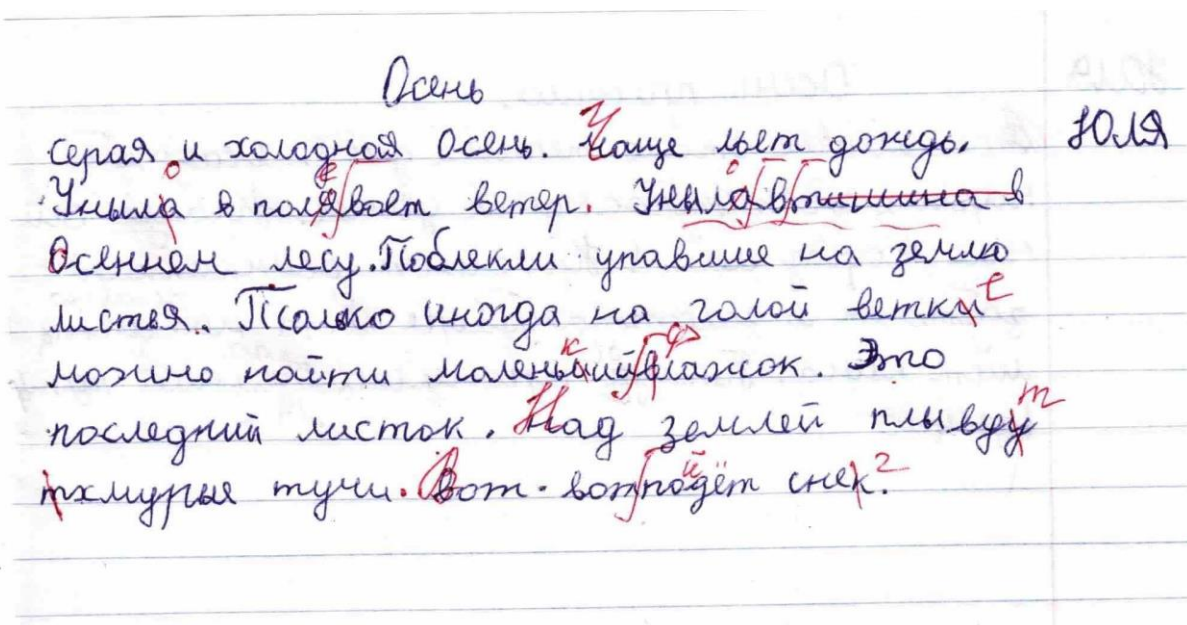 Осень
серая и холодная Осень. Чаще льет дождь. Юля
Уныла в полявоет ветер. Унылавтишина в
Осеннем лесу. Поблекли упавшие на землю
листья. Только иногда на голой ветки
можно найти маленькийвлажок. Это
последний листок. Над землей плывду
тхмурые тучи. Вот-вотподёт снек.